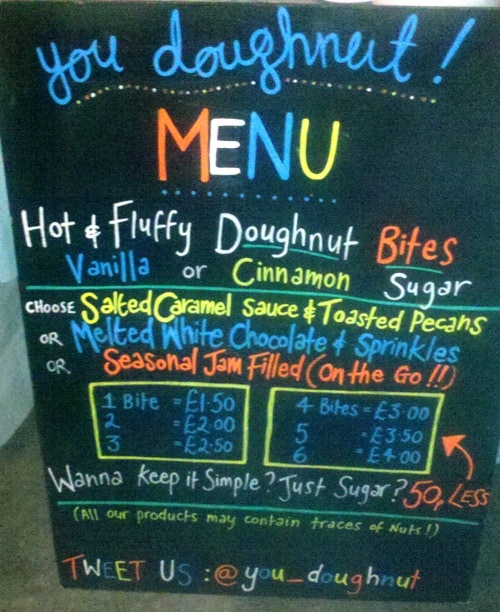 you doughnut!
MENU
Hot & Fluffy Doughnut Bites
Vanilla or Cinnamon Sugar
CHOOSE Salted Caramel Sauce & Toasted Pecans
OR Melted White Chocolate & Sprinkles
OR Seasonal Jam Filled (On the Go!!)
1 Bite = £1.50
2 = £2.00
3 = £2.50
4 Bites = £3.00
5 = £3.50
6 = £4.00
Wanna Keep it Simple? Just Sugar? 50p LESS
(All our products may contain traces of Nuts!)
TWEET US :@you_doughnut